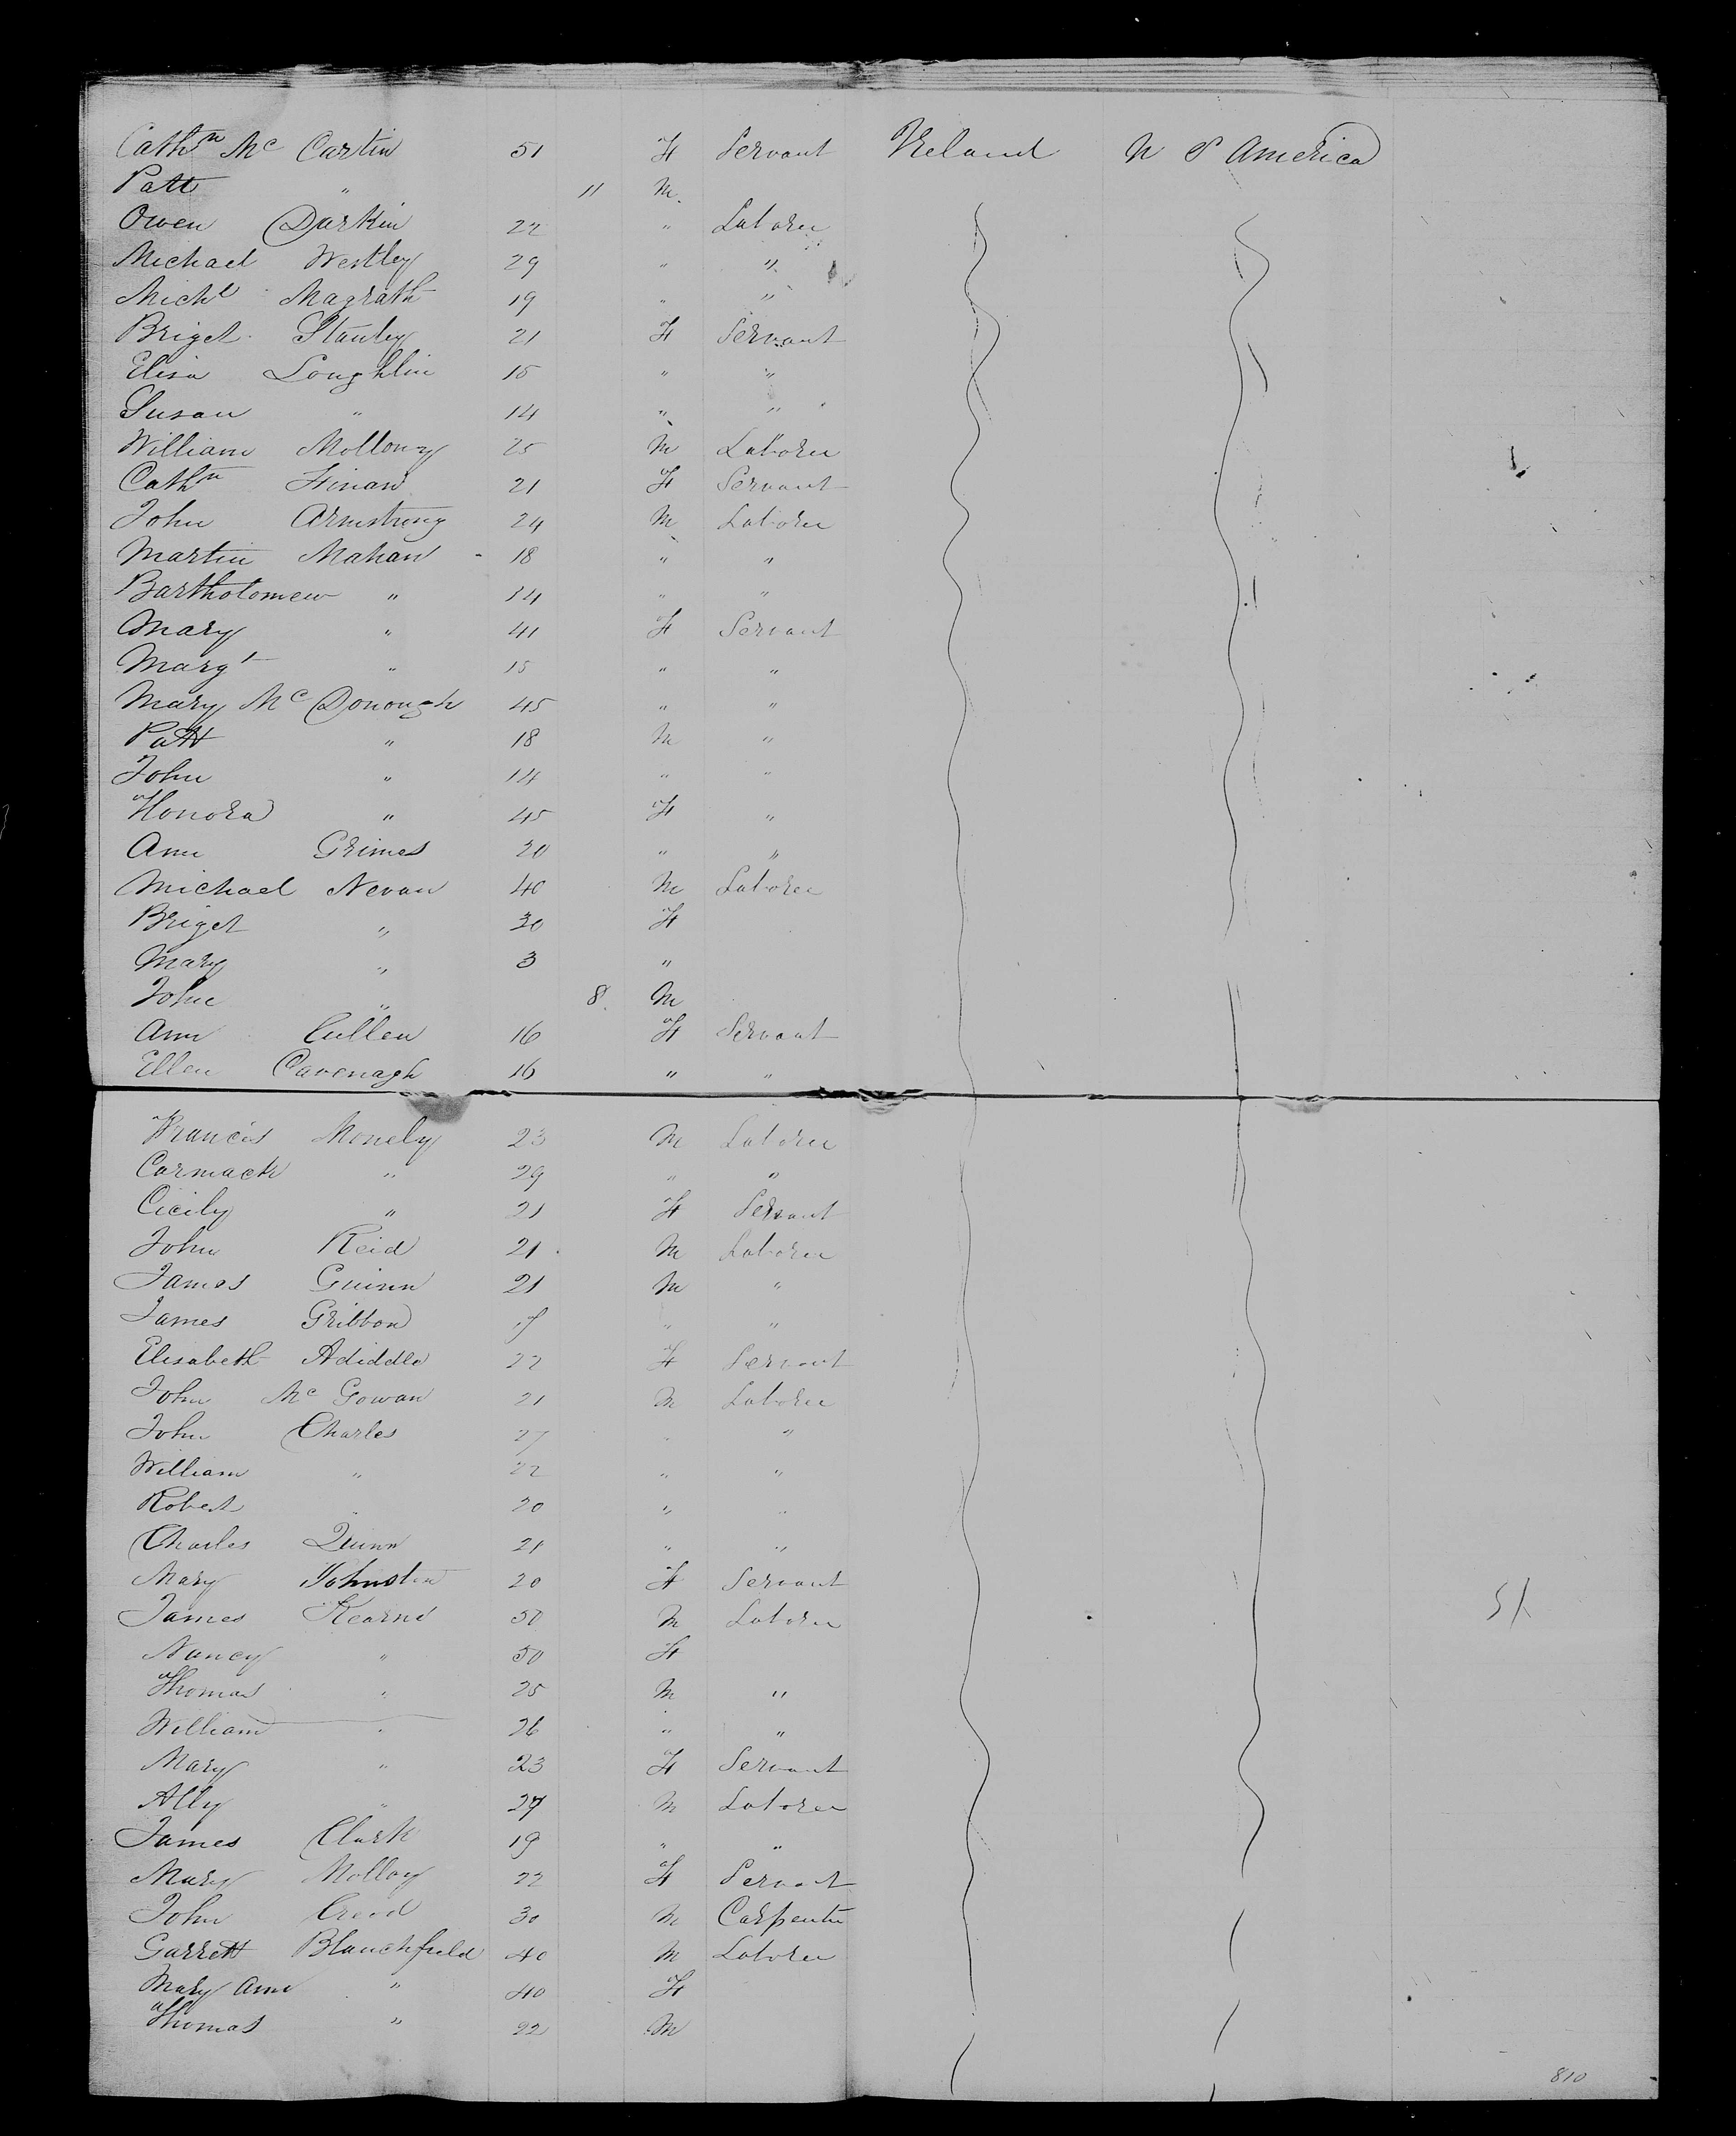 Cathn Mc Cartin 51 F Servant Ireland U S America
Patt " 11 M
Owen Durkin 22 " Laborer
Michael Westley 29 " "
Michl Magrath 19 " "
Briget Stanley 21 F Servant
Elisa Loughlin 15 " "
Susan " 14 " "
William Mollony 25 M Laborer
Cathn Finan 21 F Servant
John Armstrong 24 M Laborer
Martin Mahan 18 " "
Bartholomew " 14 " "
Mary " 41 F Servant
Margt " 15 " "
Mary Mc Donough 45 " "
Patt " 18 M "
John " 14 " "
Honora " 45 F "
Ann Grimes 20 " "
Michael Nevan 40 M Laborer
Briget " 30 F
Mary " 3 "
John " 8 M
Ann Cullen 16 F Servant
Ellen Cavenagh 16 " "
Francis Monely 23 M Laborer
Cormack " 29 " "
Cicily " 21 F Servant
John Reid 21 M Laborer
James Guinn 21 M "
James Gribbon " "
Elisabeth Adiddle 22 F Servant
John Mc Gowan 21 M Laborer
John Charles 27 " "
William " 22 " "
Robert " 20 " "
Charles Quinn 21 " "
Mary Johnston 20 F Servant
James Kearns 50 M Laborer
Nancy " 50 F
Thomas " 25 M "
William " 26 " "
Mary " 23 F Servant
Ally " 27 M Laborer
James Clark 19 " "
Mary Molloy 22 F Servant
John Creed 30 M Carpenter
Garrett Blanchfield 40 M Laborer
Mary Ann " 40 F
Thomas " 22 M
810